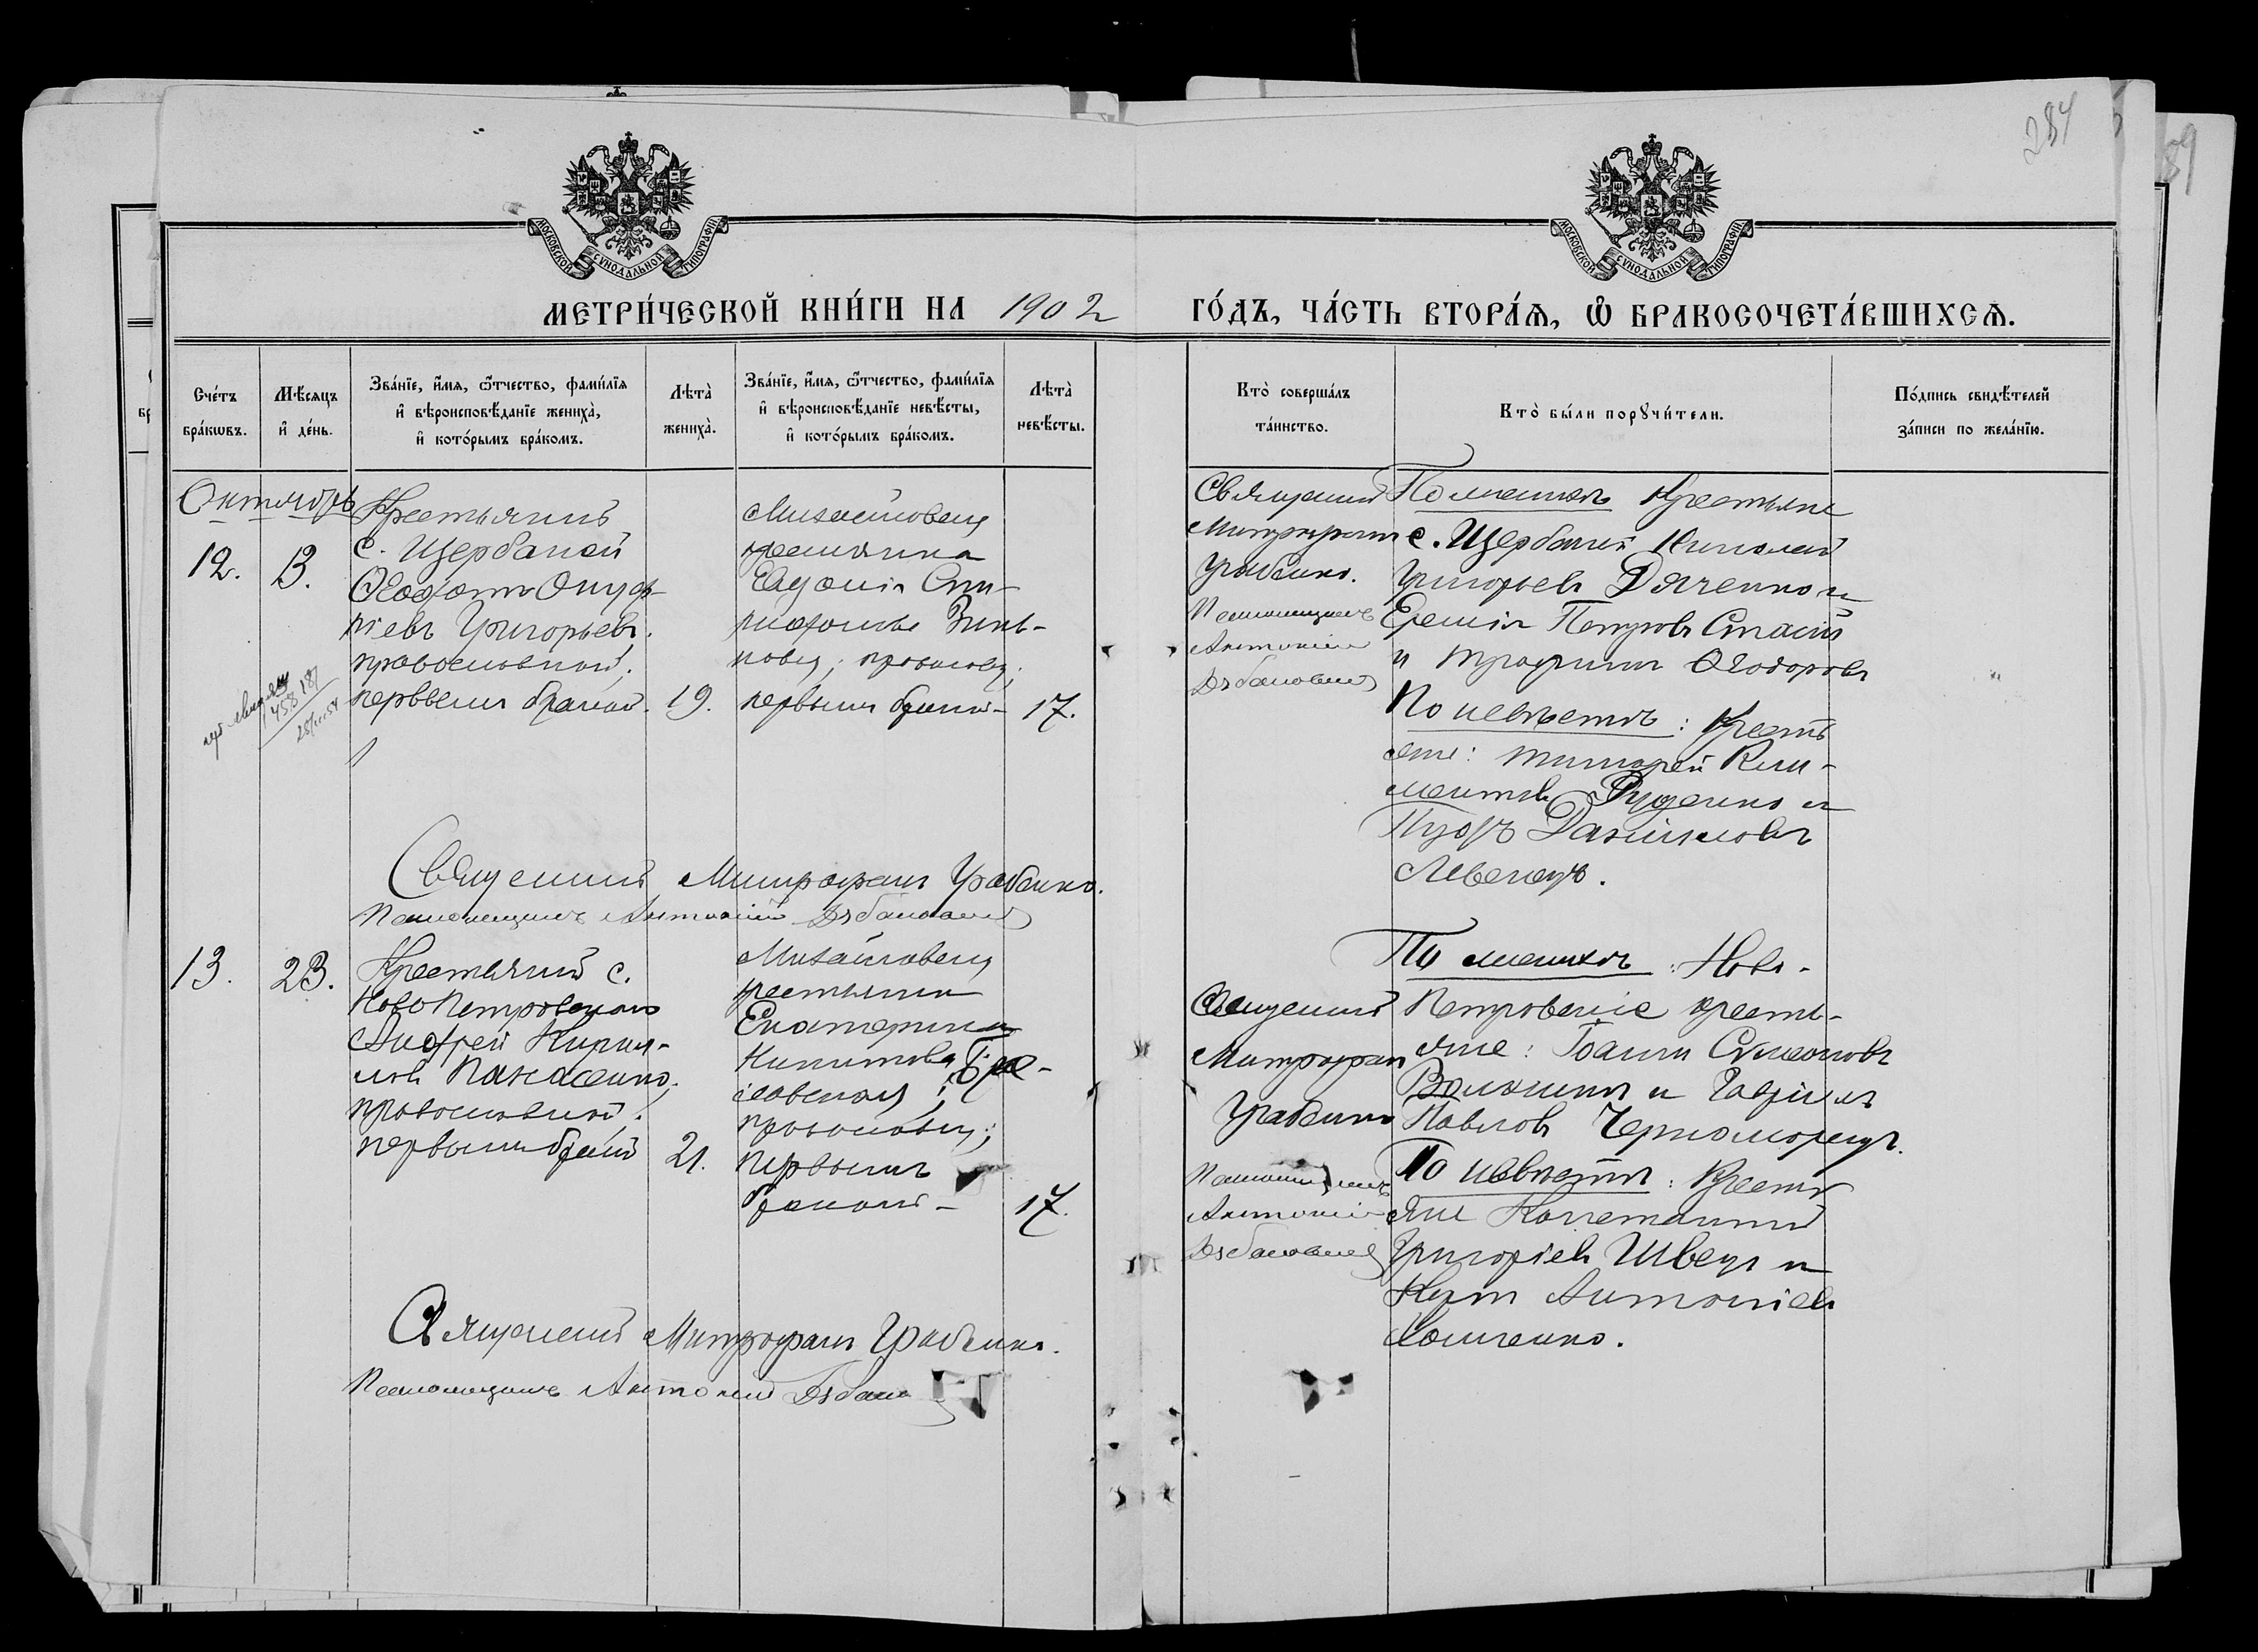 284
МОСКОВСКОЙ СѴНОДАЛЬНОЙ ТИПОГРАФІИ
МОСКОВСКОЙ СѴНОДАЛЬНОЙ ТИПОГРАФІИ
МЕТРИ́ЧЕСКОЙ КНИ́ГИ НА 1902 ГО́ДЪ, ЧА́СТЬ ВТОРА́Ѧ, Ѽ БРАКОСОЧЕТА́ВШИХСѦ.
Сче́тъ бра́кѡвъ.
Мѣ́сяцъ и҆ де́нь.
Зва́нїе, и҆́мѧ, ѻ҆́тчество, фами́лїѧ
и҆ вѣроисповѣ́данїе жениха̀,
и҆ кото́рымъ бра́комъ.
Лѣта̀ жениха̀.
Зва́нїе, и҆́мѧ, ѻ҆́тчество, фами́лїѧ
и҆ вѣроисповѣ́данїе невѣ́сты,
и҆ кото́рымъ бра́комъ.
Лѣта̀ невѣ́сты.
Кто̀ соверша́лъ та́инство.
Кто̀ бы́ли порꙋчи́тели.
По́дпись свидѣ́телей
за́писи по жела́нїю.
Октябрь
12.
13.
Крестьянинъ
с. Щербаней
Ѳеодотъ Онуф-
ріевъ Григорьевъ.
православный.
первымъ бракомъ.
19.
Михайловская
крестьянка
Евдокія Спи-
ридонова Зинь-
кова; православ;
первымъ бракомъ-
17.
Священникъ
Митрофанъ
Грабенко.
Псаломщикъ
Антоній
По женихѣ Крестьяне
с. Щербаней Николай
Григорьевъ Дяченко и
Еремія Петровъ
и Трофимъ Ѳеодоровъ
По невѣстѣ: Кресть
яне: Тимофей Кли-
ментовъ Руденко и
Данииловъ
Левенецъ.
Священникъ Митрофанъ Грабенко.
Псаломщикъ Антоній
13.
23.
Крестьянинъ с.
НовоПетровскаго
Андрей Кирил-
ловъ Панасенко;
православный.
первымъ бракомъ
21.
Михайловская
крестьянка
Екатерина
Никитова
православн;
первымъ
бракомъ-
17.
Священникъ
Митрофанъ
Грабенко
Псаломщикъ
Антоній
По женихѣ: Ново-
Петровскіе кресть-
яне: Іоаннъ Симеоновъ
Волошинъ и Гавріилъ
Павловъ Черноморецъ.
По невѣстѣ: Кресть
яне Константинъ
Григоріевъ Швецъ и
Антоніевъ
Священникъ Митрофанъ Грабенко.
Псаломщикъ Антоній